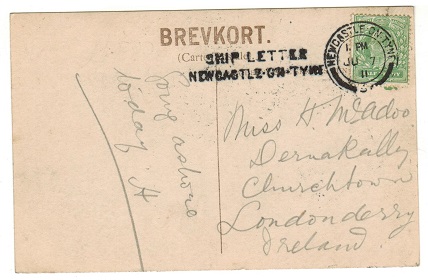 BREVKORT.
SHIP LETTER
NEWCASTLE-ON-TYNE
NEWCASTLE-ON-TYNE
1 PM
JU 7
11
Going ashore
today H
Miss H McAdoo
Dernakally
Churchtown
Londonderry
Ireland.